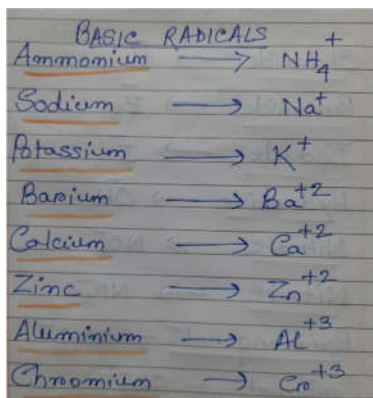 BASIC RADICALS
Ammonium → NH₄⁺
Sodium → Na⁺
Potassium → K⁺
Barium → Ba⁺²
Calcium → Ca⁺²
Zinc → Zn⁺²
Aluminium → Al⁺³
Chromium → Cr⁺³